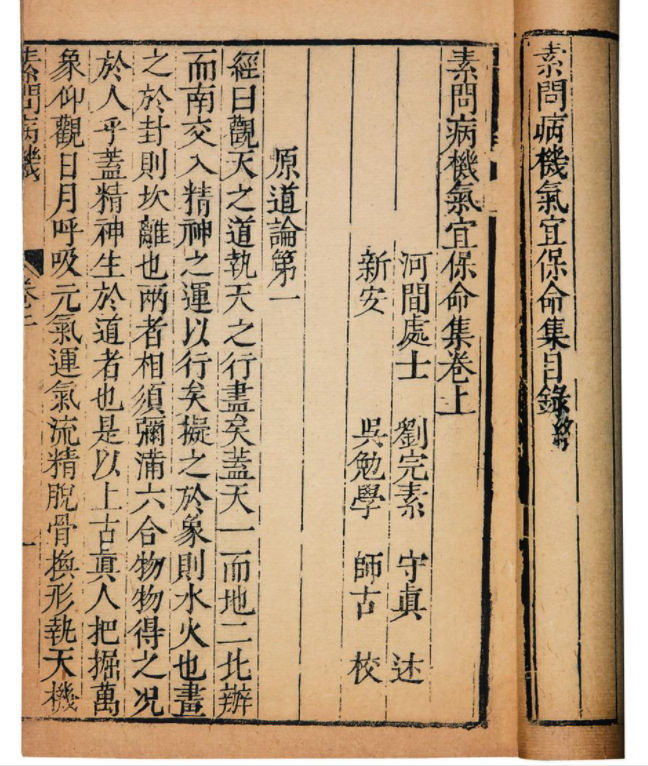 素問病機氣宜保命集目錄終
素問病機氣宜保命集卷上
河間處士 劉完素 守眞 述
新安 吳勉學 師古 校
原道論第一
經曰觀天之道執天之行盡矣蓋天一而地二北辦
而南交入精神之運以行矣擬之於象則水火也畫
之於封則坎離也兩者相須彌滿六合物物得之况
於人乎蓋精神生於道者也是以上古眞人把握萬
象仰觀日月呼吸元氣運氣流精脫骨換形執天機
素問病機
卷上
一